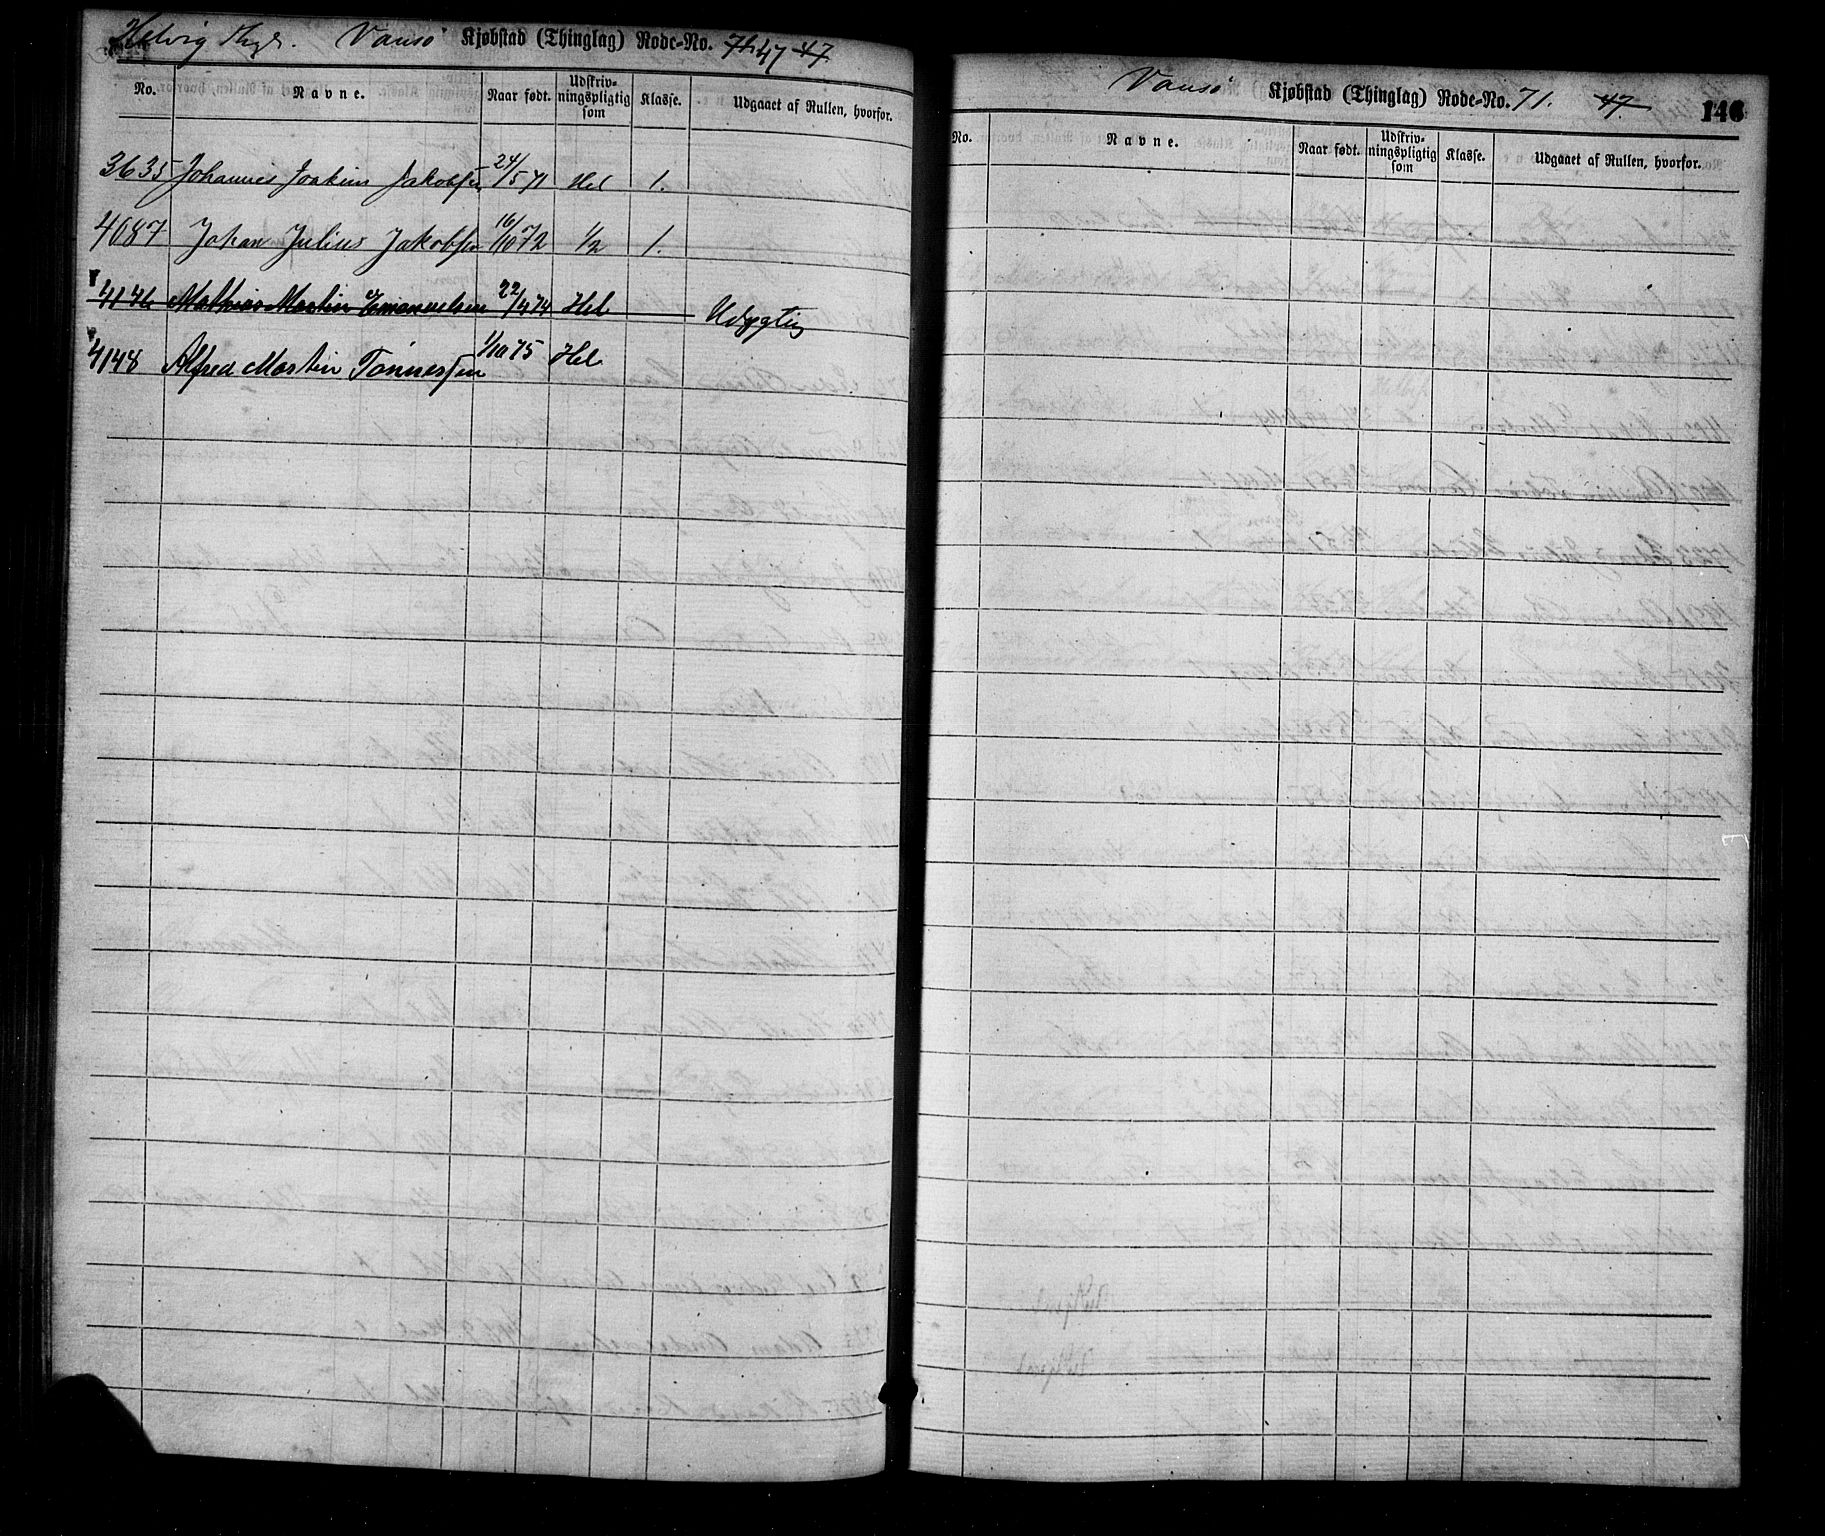 Vansø Kjøbstad (Thinglag) Rode-No. 71. 47 47
No. Navne. Naar født. Udskrivningspligtig som Klasse. Udgaaet af Rullen, hvorfor.
3635 Johannes Joakim Jakobsen 24/5 71 Hel 1.
4087 Johan Julius Jakobsen 16/10 72 1/2 1.
4146 Mathias Martin Emanuelsen 22/4 74 Hel Udygtig
4148 Alfred Martin Tønnessen 1/10 75 Hel
Vansø Kjøbstad (Thinglag) Rode-No. 71. 47. 146
No. Navne. Naar født. Udskrivningspligtig som Klasse. Udgaaet af Rullen, hvorfor.